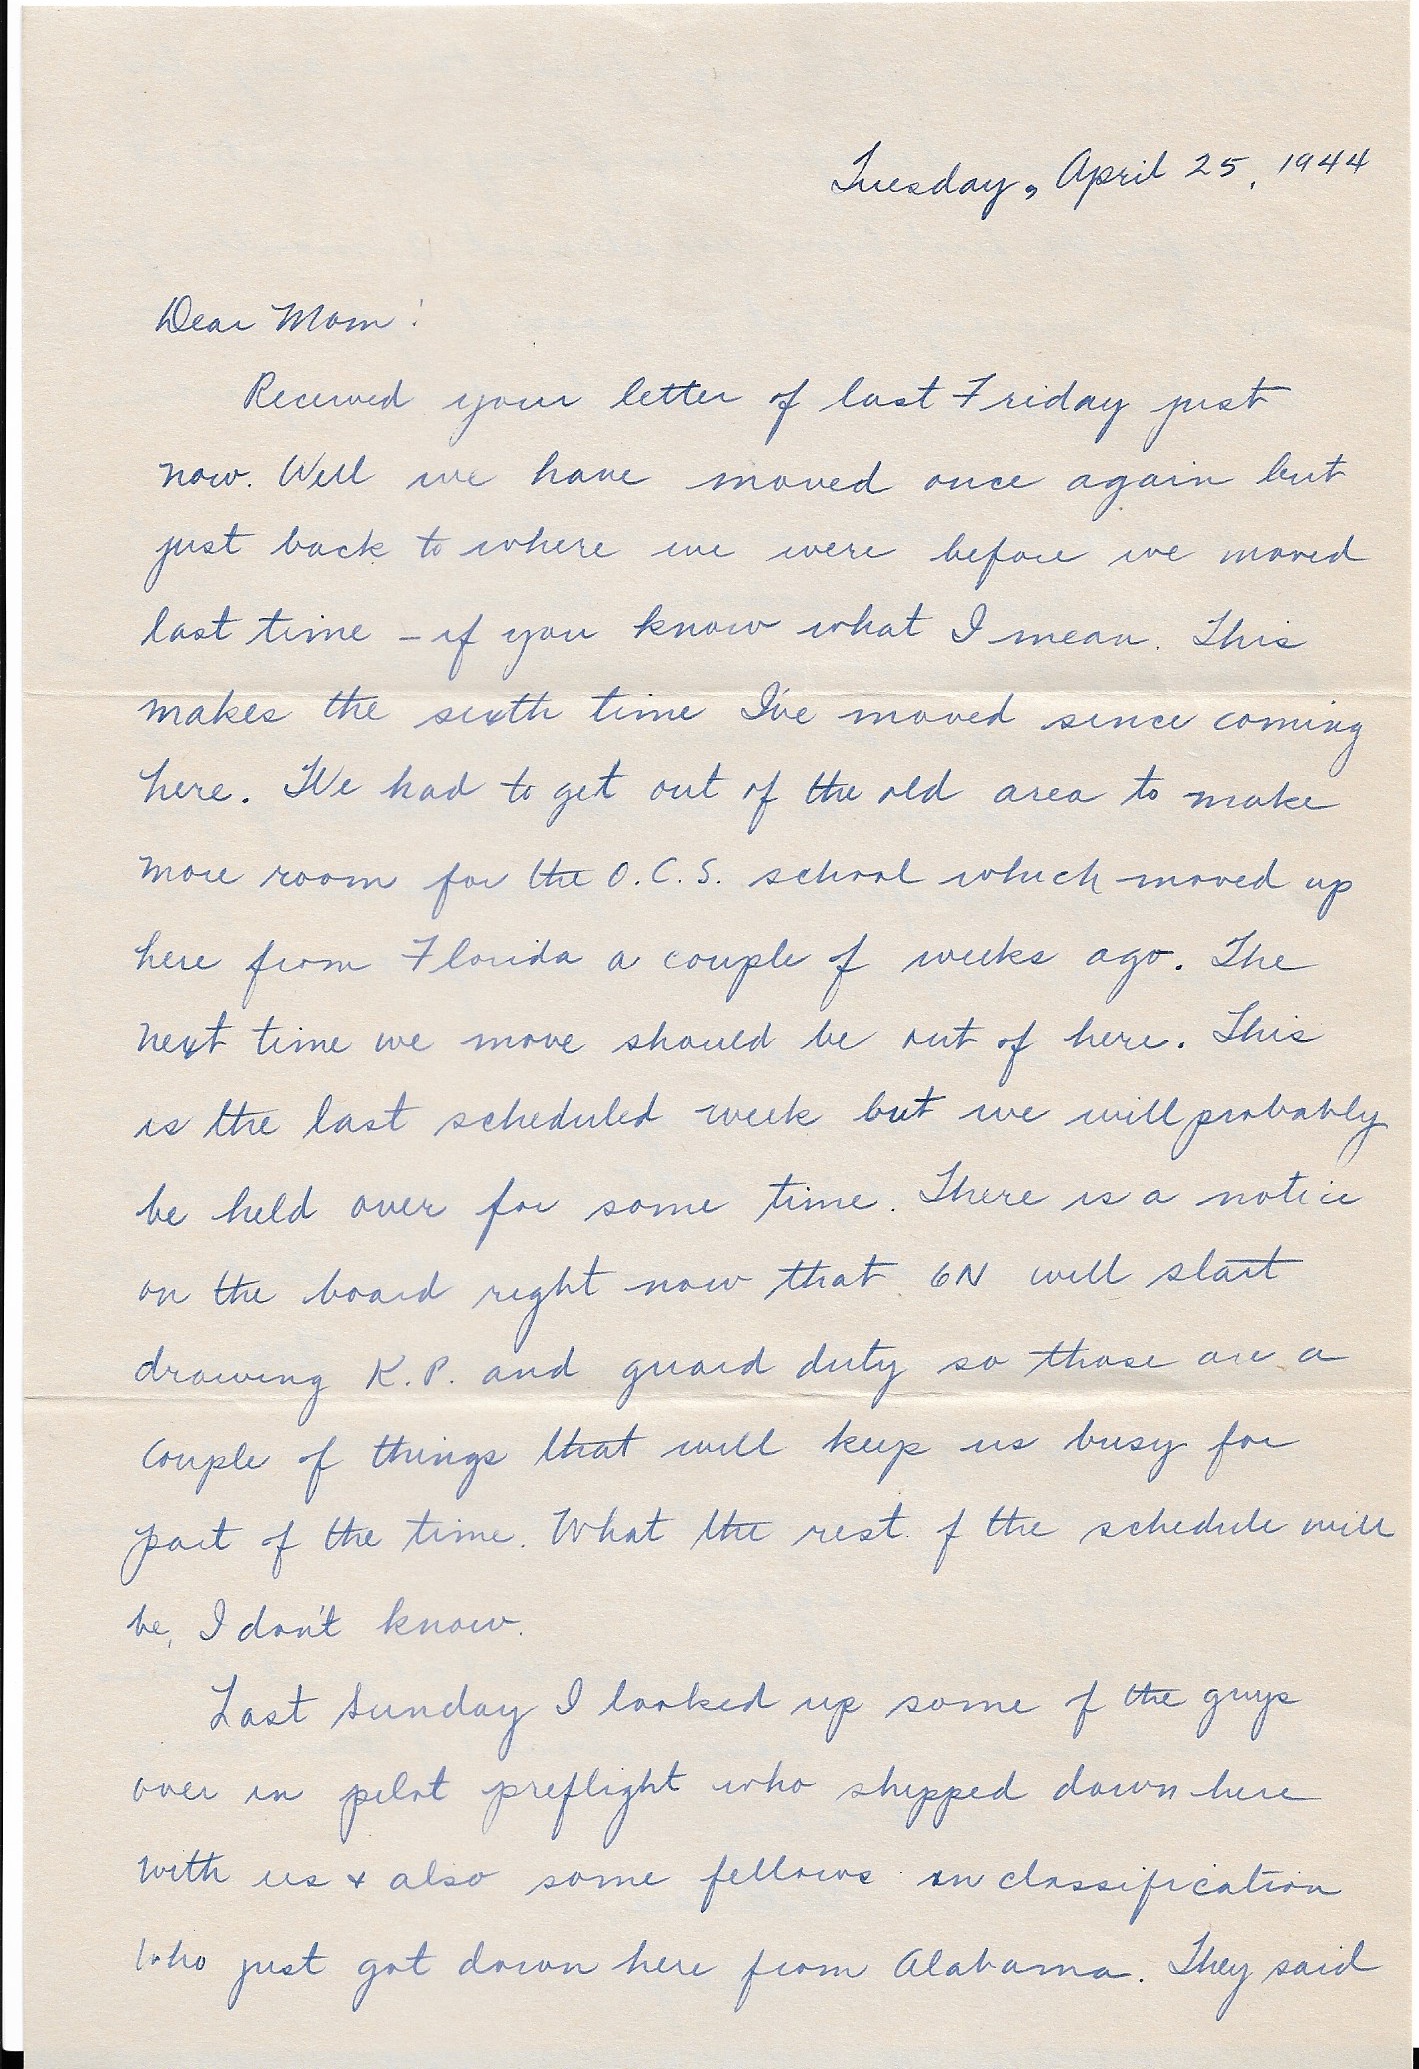 Tuesday, April 25, 1944
Dear Mom:
Received your letter of last Friday just
now. Well we have moved once again but
just back to where we were before we moved
last time – if you know what I mean. This
makes the sixth time I've moved since coming
here. We had to get out of the old area to make
more room for the O.C.S. school which moved up
here from Florida a couple of weeks ago. The
next time we move should be out of here. This
is the last scheduled week but we will probably
be held over for some time. There is a notice
on the board right now that 6N will start
drawing K.P. and guard duty so those are a
couple of things that will keep us busy for
part of the time. What the rest of the schedule will
be, I don't know.
Last Sunday I looked up some of the guys
over in pilot preflight who shipped down here
with us & also some fellows in classification
who just got down here from Alabama. They said